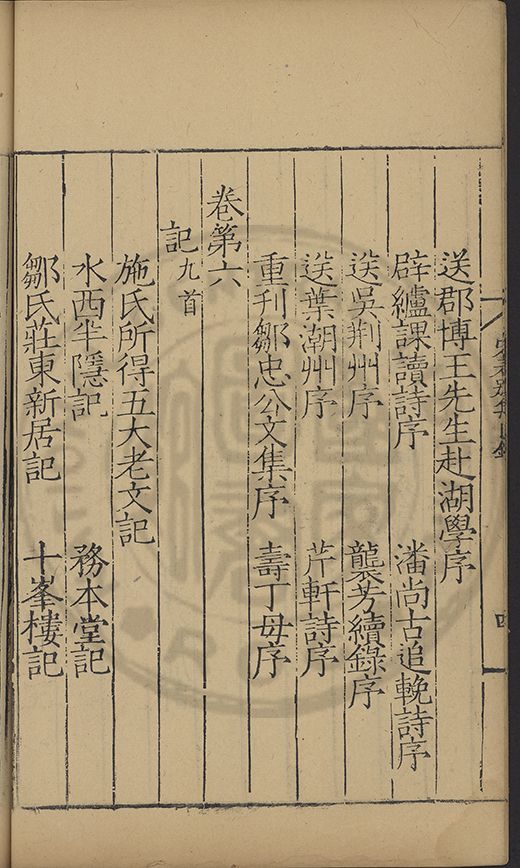 送郡博王先生赴湖學序
辟纑課讀詩序 潘尚古追輓詩序
送吳荆州序 襲芳續錄序
送葉潮州序 芹軒詩序
重刊鄒忠公文集序 壽丁母序
卷第六
記九首
施氏所得五大老文記
水西半隱記 務本堂記
鄒氏莊東新居記 十峯樓記